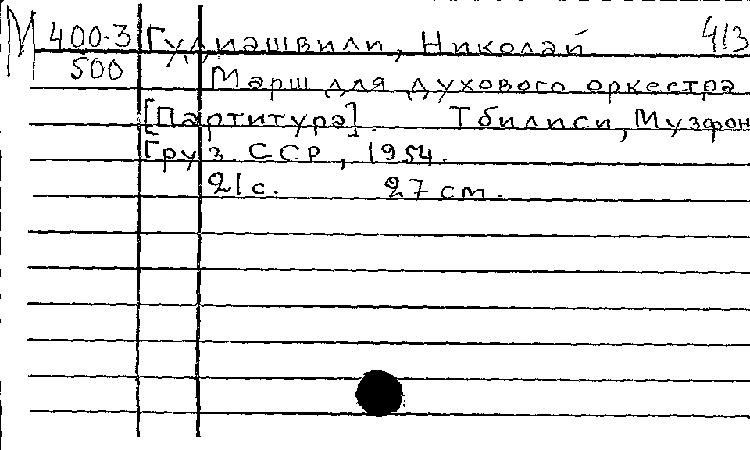 М 400-3 Гулиашвили, Николай 413
500 Марш для духового оркестра
[Партитура]. Тбилиси, Музфонд
Груз ССР, 1954.
21 с. 27 см.